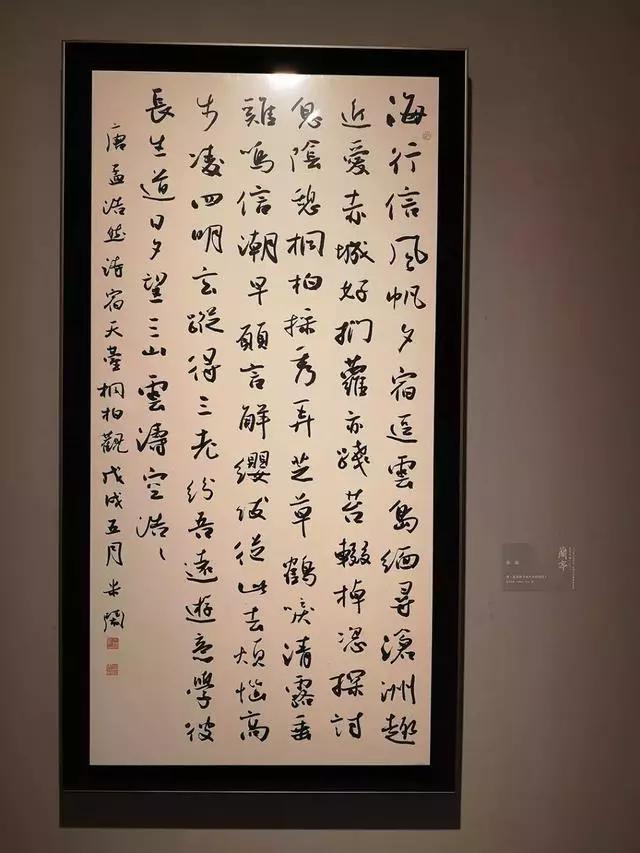 海行信風帆夕宿逗雲島緬尋滄洲趣
近愛赤城好捫蘿亦踐苔輟棹恣探討
息陰憩桐柏採秀弄芝草鶴唳清露垂
雞鳴信潮早願言解纓紱從此去煩惱高
步凌四明玄蹤得三老紛吾遠遊意學彼
長生道日夕望三山雲濤空浩〻
唐孟浩然詩宿天臺桐柏觀戊戌五月
蘭亭